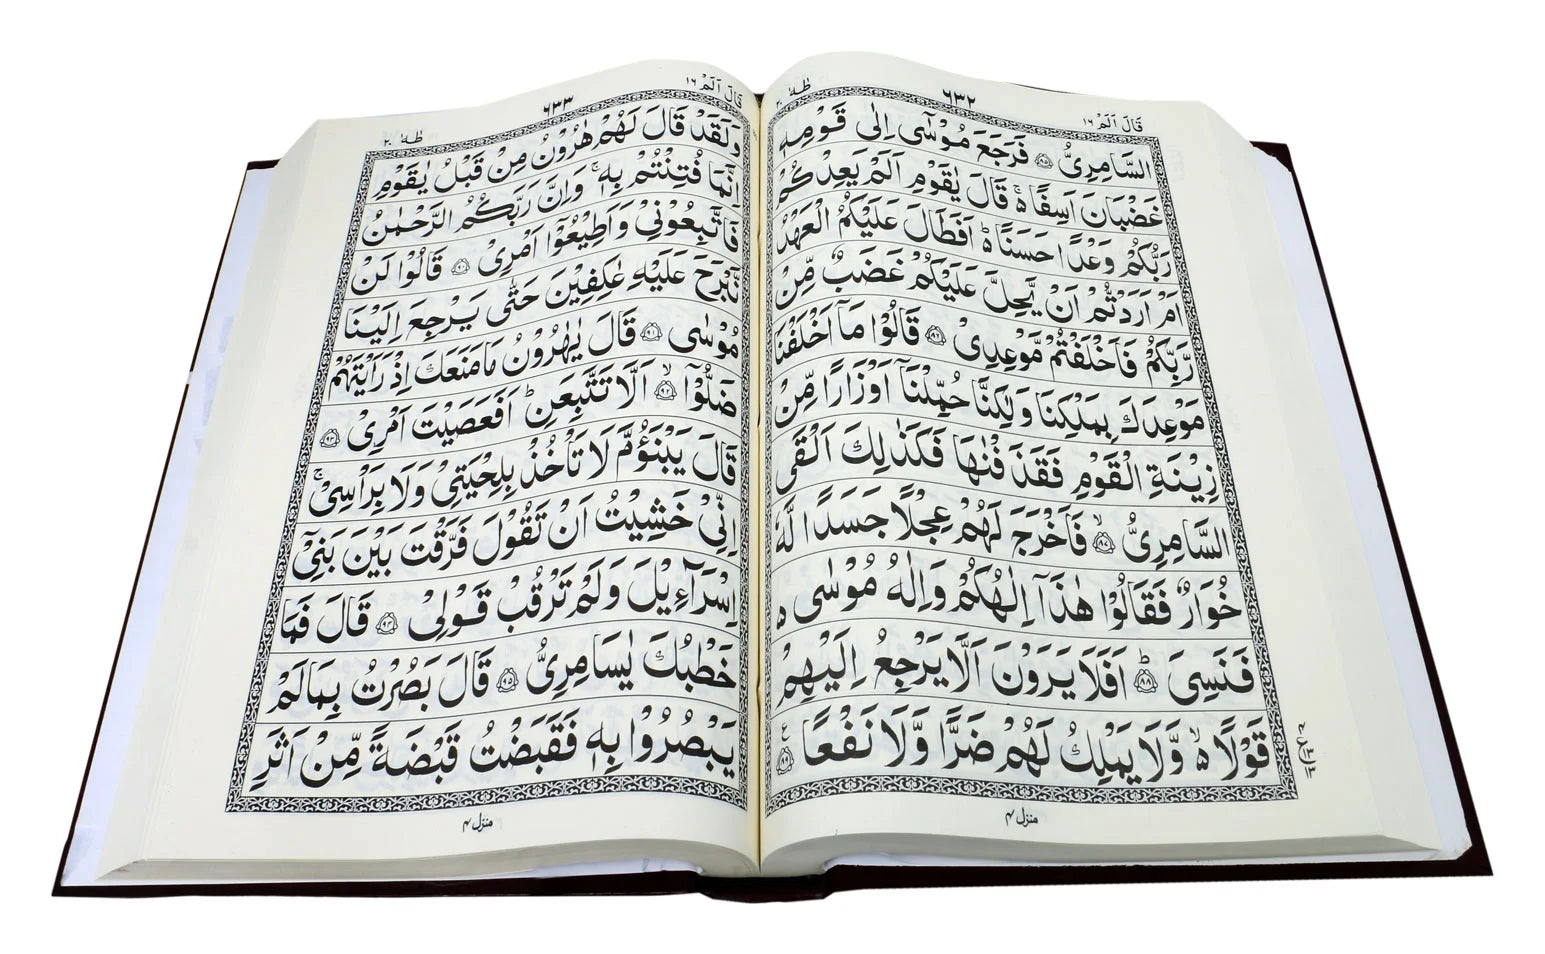 قَالَ اَلَمْ ١٦
٦٣٢
طٰهٰ ٢٠
السَّامِرِيُّ ﴿٨٥﴾ فَرَجَعَ مُوْسٰٓى اِلٰى قَوْمِهٖ
غَضْبَانَ اَسِفًا ۚ۬ قَالَ يٰقَوْمِ اَلَمْ يَعِدْكُمْ
رَبُّكُمْ وَعْدًا حَسَنًا ۬ؕ اَفَطَالَ عَلَيْكُمُ الْعَهْدُ
اَمْ اَرَدْتُّمْ اَنْ يَّحِلَّ عَلَيْكُمْ غَضَبٌ مِّنْ
رَّبِّكُمْ فَاَخْلَفْتُمْ مَّوْعِدِيْ ﴿٨٦﴾ قَالُوْا مَاۤ اَخْلَفْنَا
مَوْعِدَكَ بِمَلْكِنَا وَلٰكِنَّا حُمِّلْنَاۤ اَوْزَارًا مِّنْ
زِيْنَةِ الْقَوْمِ فَقَذَفْنٰهَا فَكَذٰلِكَ اَلْقَى
السَّامِرِيُّ ﴿٨٧﴾ۙ فَاَخْرَجَ لَهُمْ عِجْلًا جَسَدًا لَّهٗ
خُوَارٌ فَقَالُوْا هٰذَاۤ اِلٰهُكُمْ وَاِلٰهُ مُوْسٰى ۬
فَنَسِيَ ﴿٨٨﴾ؕ اَفَلَا يَرَوْنَ اَلَّا يَرْجِعُ اِلَيْهِمْ
قَوْلًا ۬ۙ وَّلَا يَمْلِكُ لَهُمْ ضَرًّا وَّلَا نَفْعًا ﴿٨٩﴾
منزل ٤
قَالَ اَلَمْ ١٦
٦٣٣
طٰهٰ ٢٠
وَلَقَدْ قَالَ لَهُمْ هٰرُوْنُ مِنْ قَبْلُ يٰقَوْمِ
اِنَّمَا فُتِنْتُمْ بِهٖ ۚ وَاِنَّ رَبَّكُمُ الرَّحْمٰنُ
فَاتَّبِعُوْنِيْ وَاَطِيْعُوْۤا اَمْرِيْ ﴿٩٠﴾ قَالُوْا لَنْ
نَّبْرَحَ عَلَيْهِ عٰكِفِيْنَ حَتّٰى يَرْجِعَ اِلَيْنَا
مُوْسٰى ﴿٩١﴾ قَالَ يٰهٰرُوْنُ مَا مَنَعَكَ اِذْ رَاَيْتَهُمْ
ضَلُّوْۤا ﴿٩٢﴾ۙ اَلَّا تَتَّبِعَنِ ؕ اَفَعَصَيْتَ اَمْرِيْ ﴿٩٣﴾
قَالَ يَبْنَؤُمَّ لَا تَاْخُذْ بِلِحْيَتِيْ وَلَا بِرَاْسِيْ ۚ
اِنِّيْ خَشِيْتُ اَنْ تَقُوْلَ فَرَّقْتَ بَيْنَ بَنِيْۤ
اِسْرَآءِيْلَ وَلَمْ تَرْقُبْ قَوْلِيْ ﴿٩٤﴾ قَالَ فَمَا
خَطْبُكَ يٰسَامِرِيُّ ﴿٩٥﴾ قَالَ بَصُرْتُ بِمَا لَمْ
يَبْصُرُوْا بِهٖ فَقَبَضْتُ قَبْضَةً مِّنْ اَثَرِ
منزل ٤